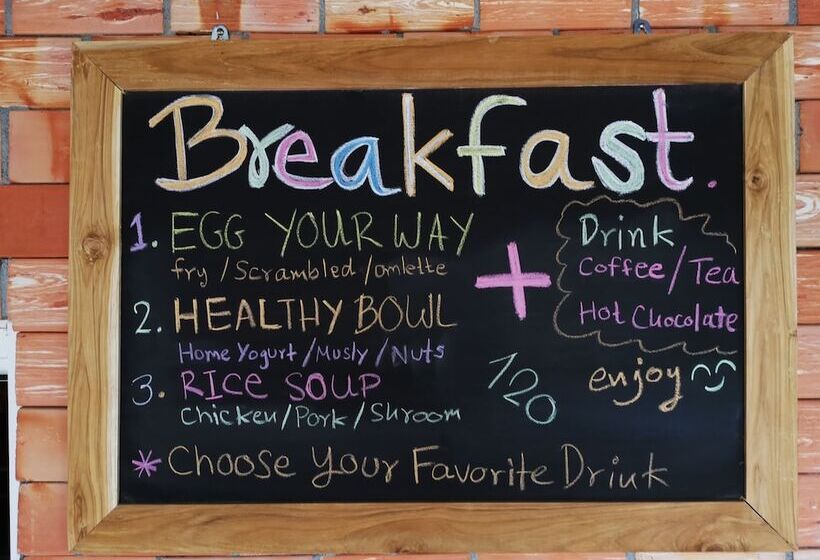 Breakfast.
1. EGG YOUR WAY
fry / Scrambled / omlette
2. HEALTHY BOWL
Home Yogurt / Musly / Nuts
3. RICE SOUP
Chicken / Pork / Shroom
+
Drink
Coffee / Tea
Hot Chocolate
120
enjoy
* Choose Your Favorite Drink